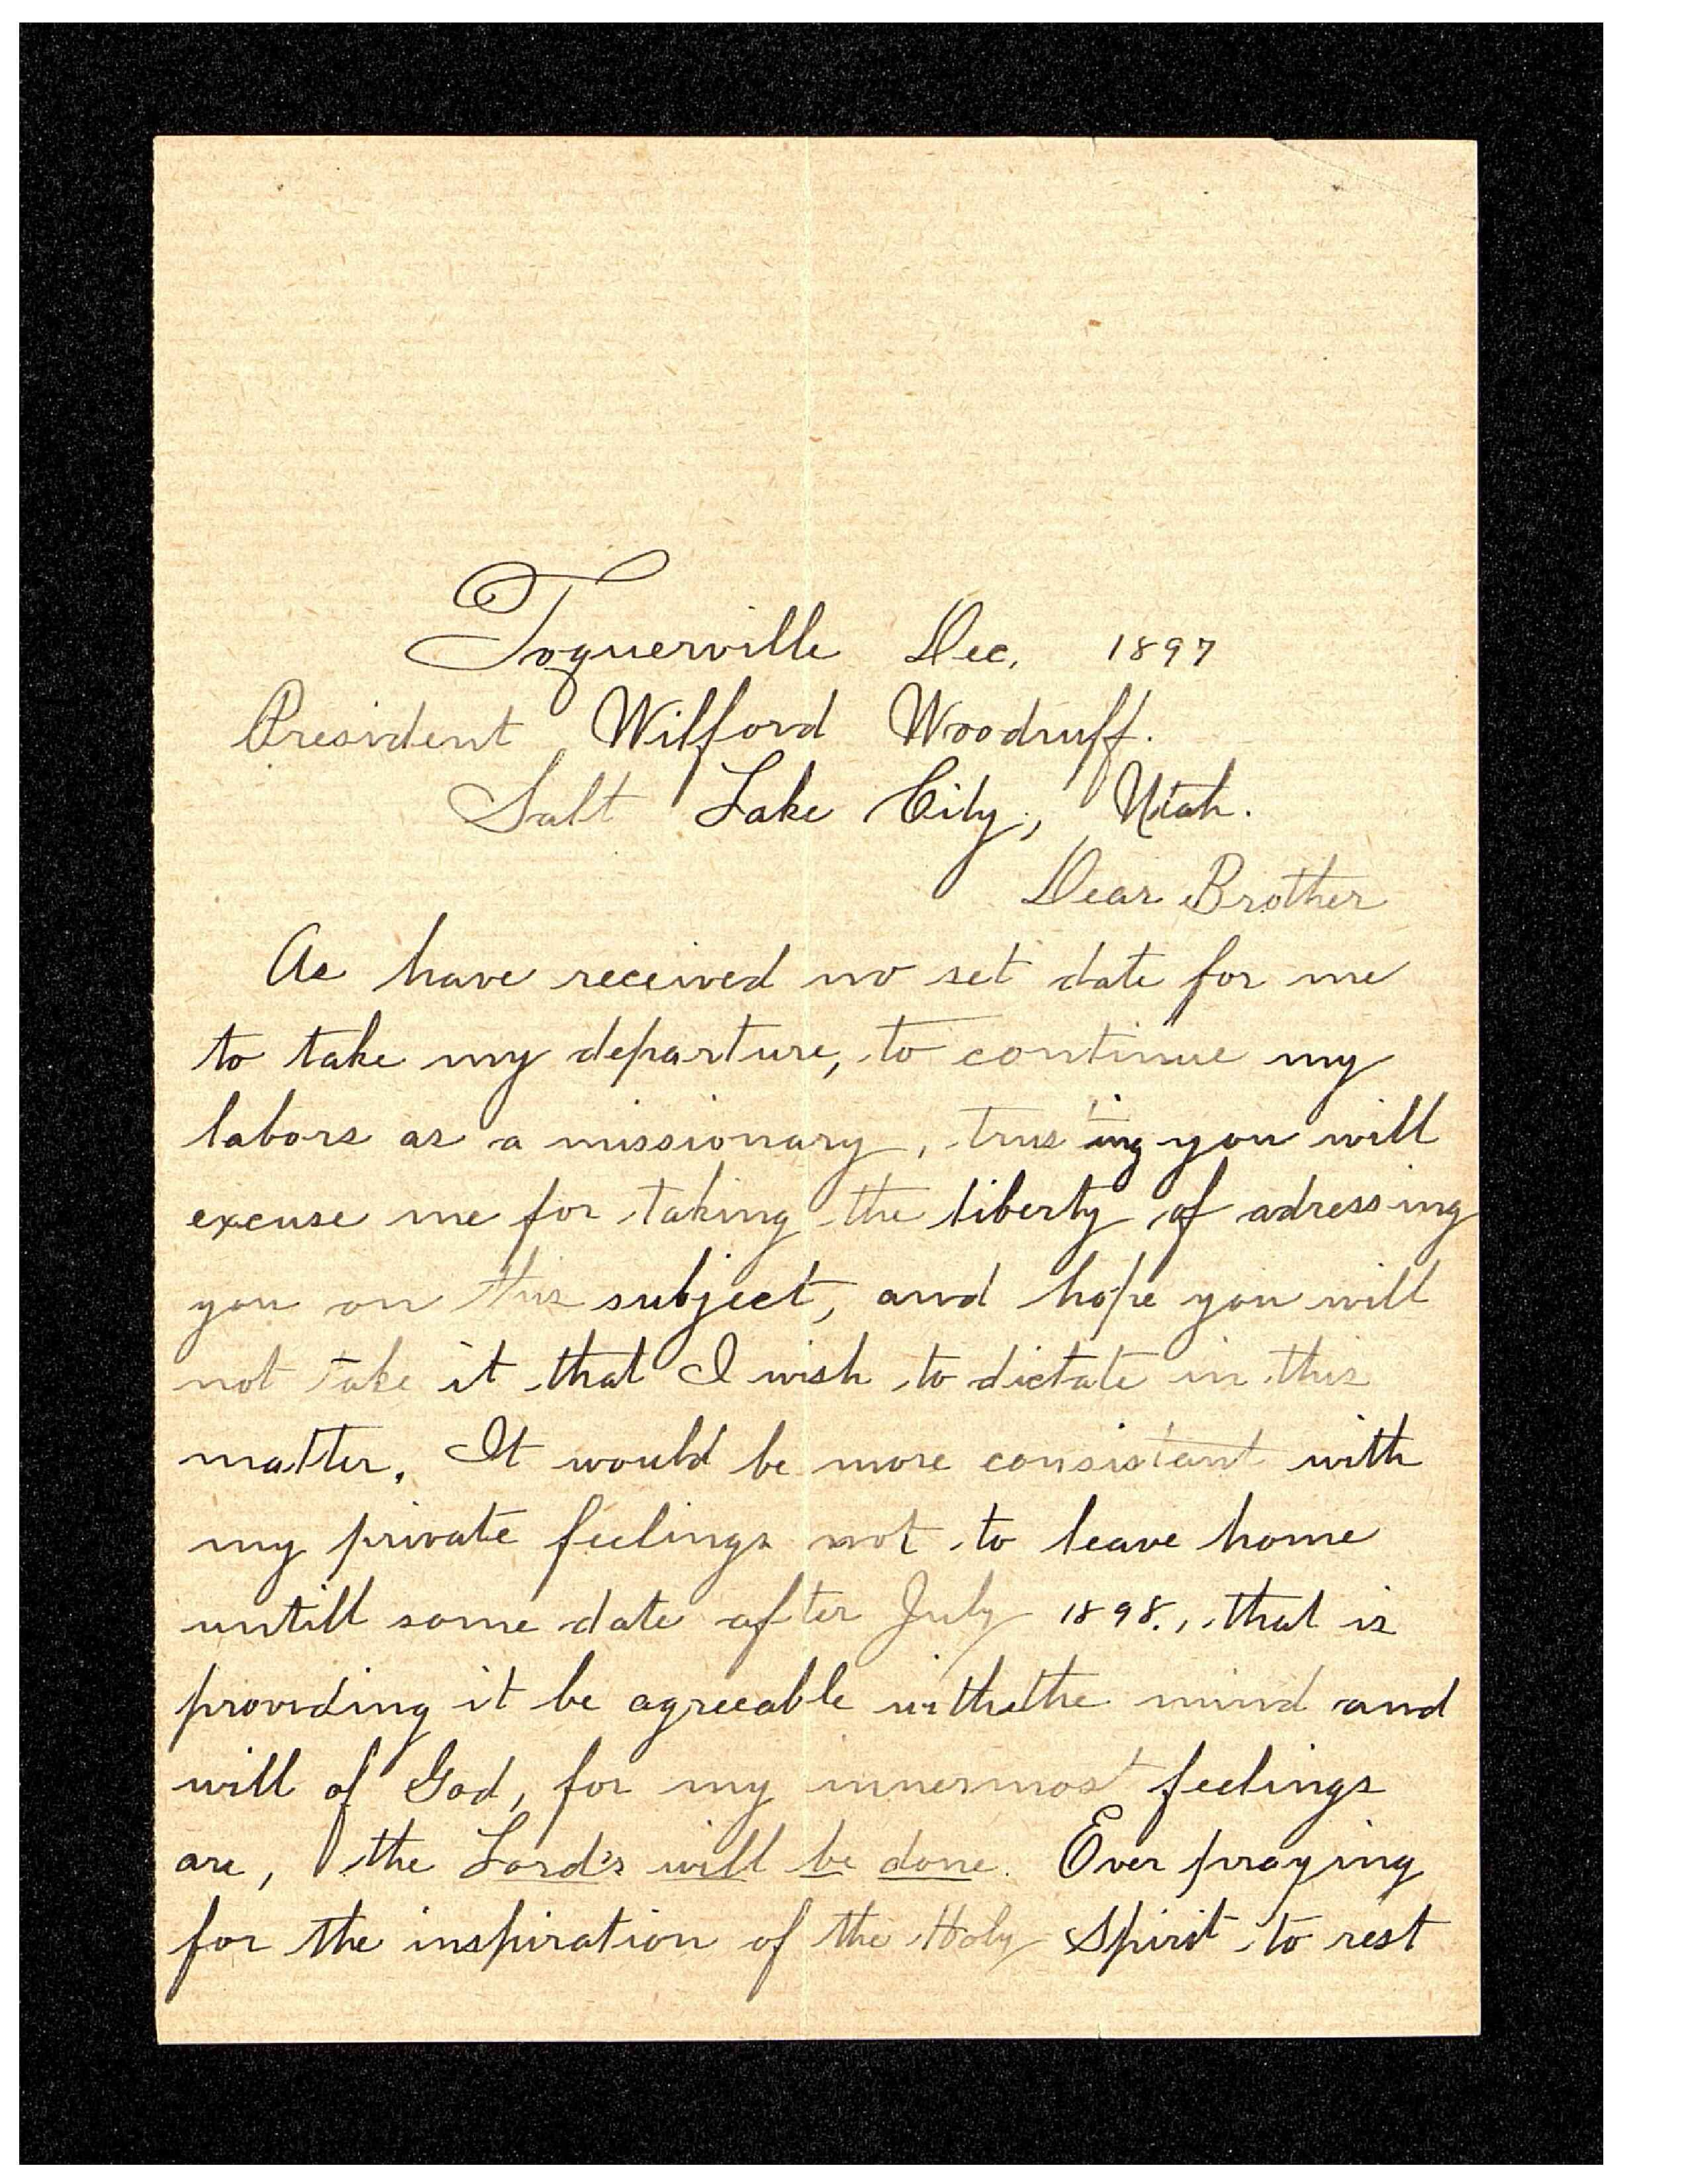 Toquerville Dec. 1897
President Wilford Woodruff.
Salt Lake City, Utah.
Dear Brother
As have received no set date for me
to take my departure, to continue my
labors as a missionary, trusing you will
excuse me for taking the liberty of adressing
you on this subject, and hope you will
not take it that I wish to dictate in this
matter. It would be more consistant with
my private feelings not to leave home
untill some date after July 1898., that is
providing it be agreeable with the mind and
will of God, for my innermost feelings
are, the Lord's will be done. Ever praying
for the inspiration of the Holy Spirit to rest